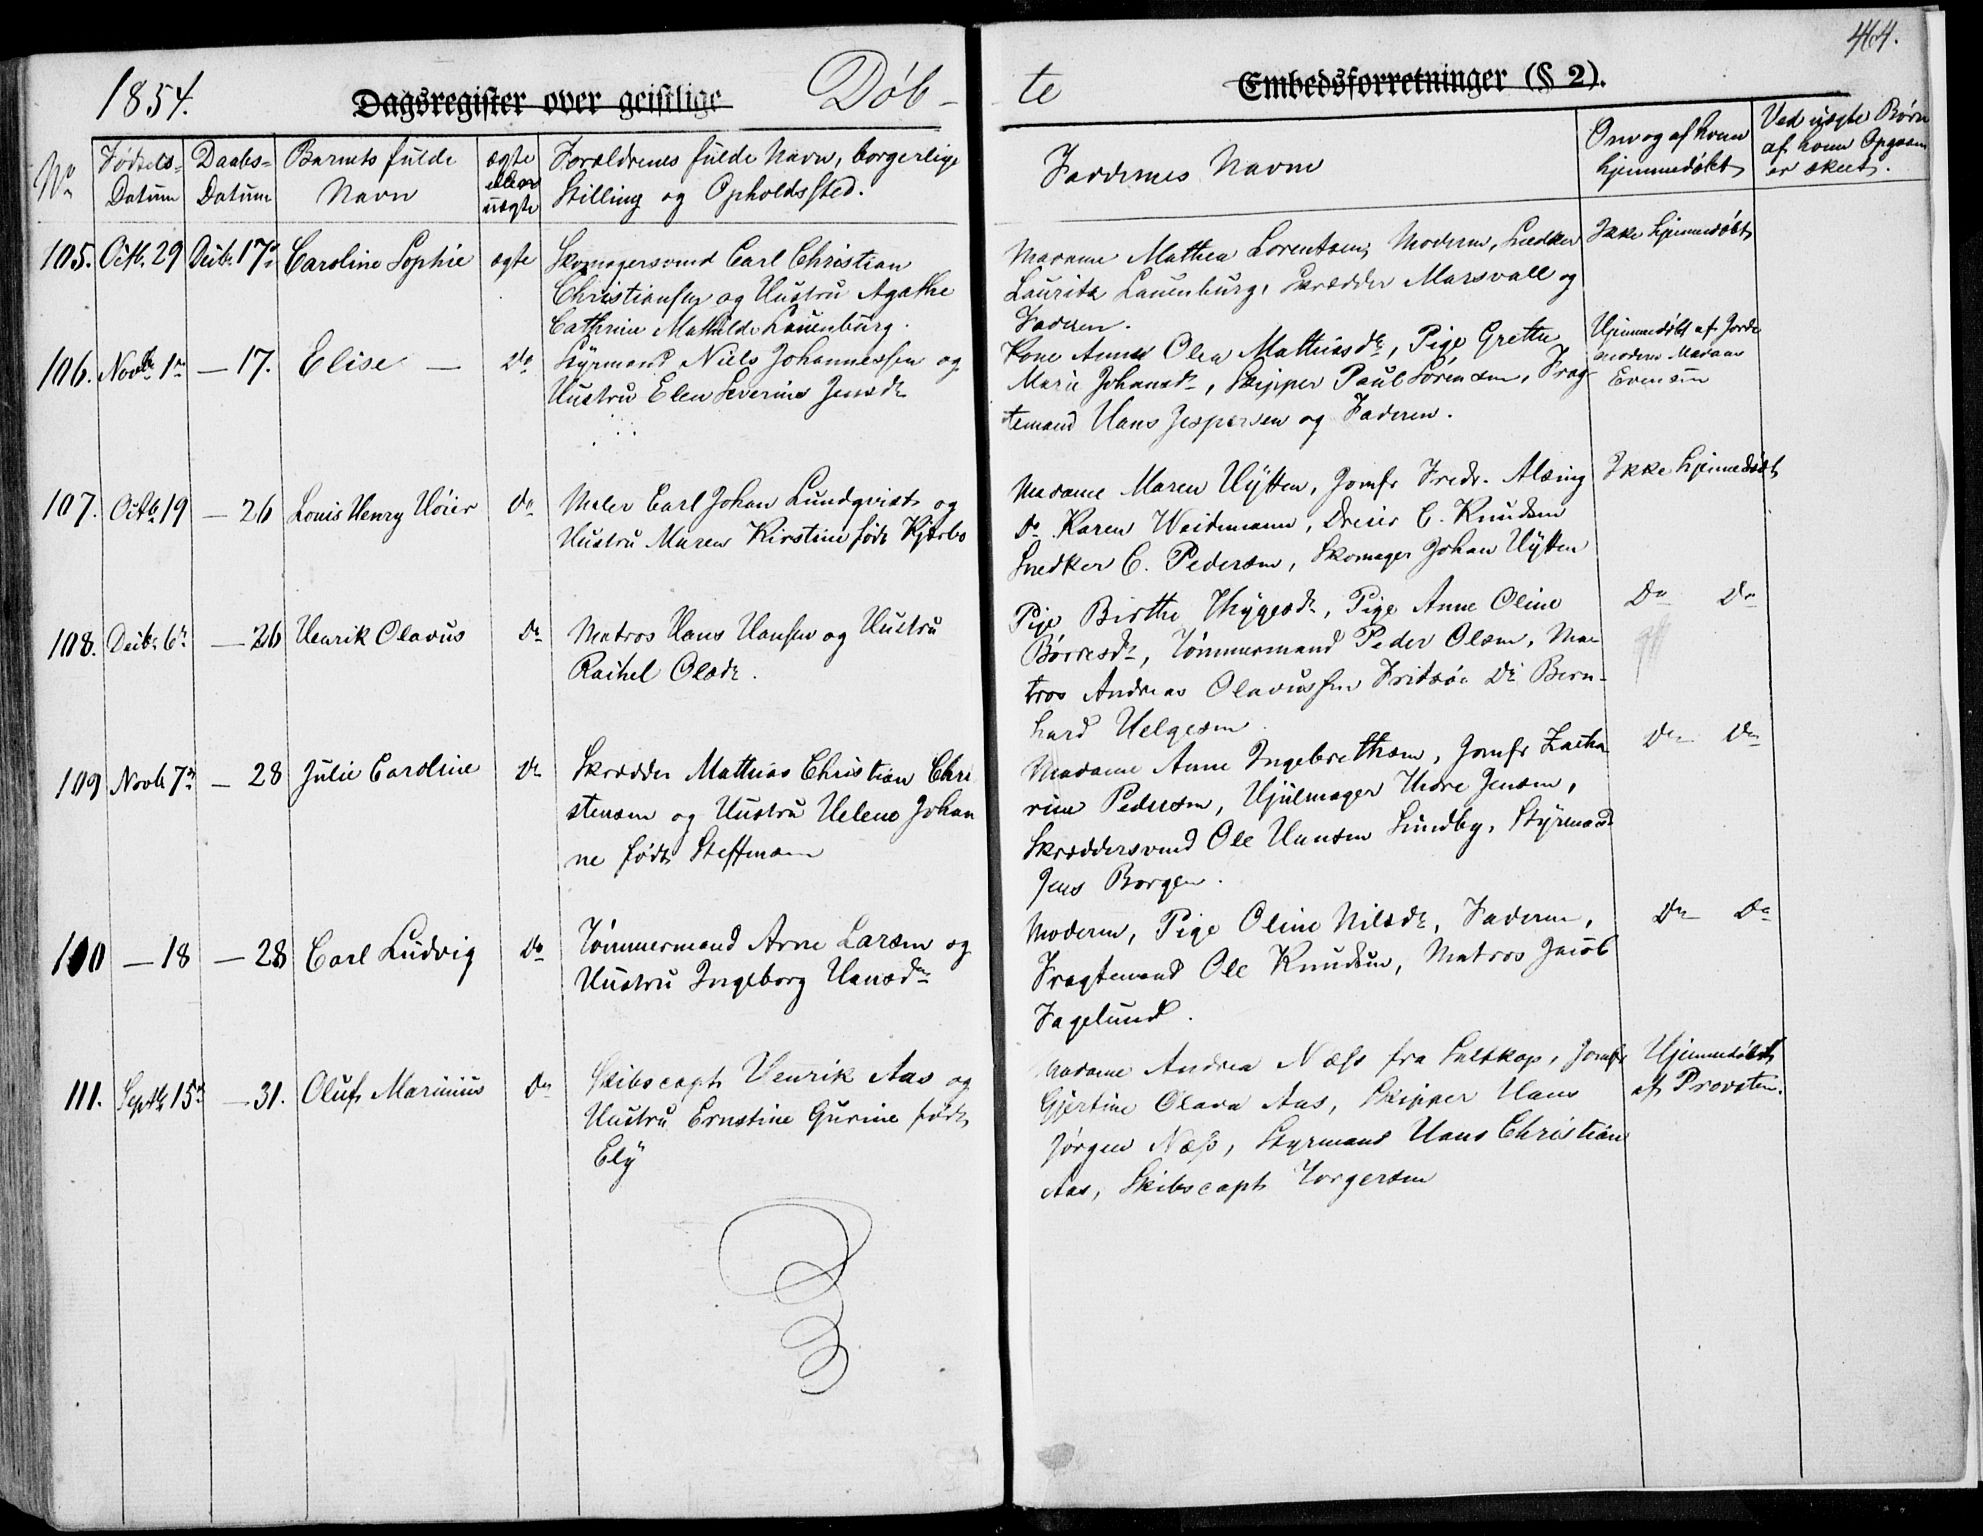 1854.
Dagsregister over geistlige
Døb-
No
Fødsels-
Datum
Daabs-
Datum
Barnets fulde
Navn
ægte
eller
uægte
Forældrenes fulde Navn, borgerlige
Stilling og Opholdssted.
105. Octb. 29 Decb. 17de Caroline Sophie ægte Skomagersvend Carl Christian
Christiansen og Hustru Agathe
Cathrine Mathilde Lauenburg.
106. Novbr 1ste — 17. Elise — Do Styrmand Niels Johannessen og
Hustru Elen Severine Jensdr
107. Octb 19 — 26 Louis Henry Höier Do Maler Carl Johan Lundqvist og
Hustru Maren Kirstine født Kjerbo
108. Decb. 6te — 26 Henrik Olavus Do Matros Hans Hansen og Hustru
Rachel Olsdr.
109 Novb 7de — 28 Julie Caroline Do Skrædder Mathias Christian Chri
stensen og Hustru Helene Johan
ne født Steffensen
110 — 18 — 28 Carl Ludvig Do Tömmermand Arne Larsen og
Hustru Ingeborg Hansdr
111. Septbr 15de — 31. Oluf Marinius Do Skibscapt Henrik Aas og
Hustru Ernstine Gurine født
Ely
464.
te
Embedsforretninger (§ 2).
Faddernes Navne
Om og af hvem
hjemmedøbt
Ved uægte Børn
af hvem Opgaven
er skeet.
Madame Mathea Lorentsen, Moderen, Snedker Ikke hjemmedøbt
Lauritz Lauenburg, Skrædder Marsvall og
Faderen.
Kone Anne Olea Mathiasdr, Pige Grethe Hjemmedøbt af Jorde
Marie Johansdr, Skipper Paul Sörensen, Frag- moder Madam
temand Hans Jespersen og Faderen. Evensen
Madame Maren Hytten, Jomfr Fredr. Alsing Ikke hjemmedøbt
Do Karen Weidemann, Dreier C. Knudsen
Snedker C. Pedersen, Skomager Johan Hytten
Pige Birthe Thygesdr, Pige Anne Oline Do Do
Börresdr, Tömmermand Peder Olsen, Ma-
tros Andreas Olavussen Fritsöe Do Bern-
hard Helgesen
Madame Anne Ingebrethsen, Jomfr Zacha Do Do
rine Pedersen, Hjulmager Thore Jensen,
Skræddersvend Ole Hansen Lundby, Styrmand
Jens Borgen.
Moderen, Pige Oline Nilsdr, Faderen, Do Do
Fragtemand Ole Knudsen, Matros Jacob
Fagelund.
Madame Andrea Næss fra Saltkop, Jomfr Hjemmedøbt
Gjertine Olava Aas, Skipper Hans af Provsten.
Jörgen Næss, Styrmand Hans Christian
Aas, Skibscapt Torgersen